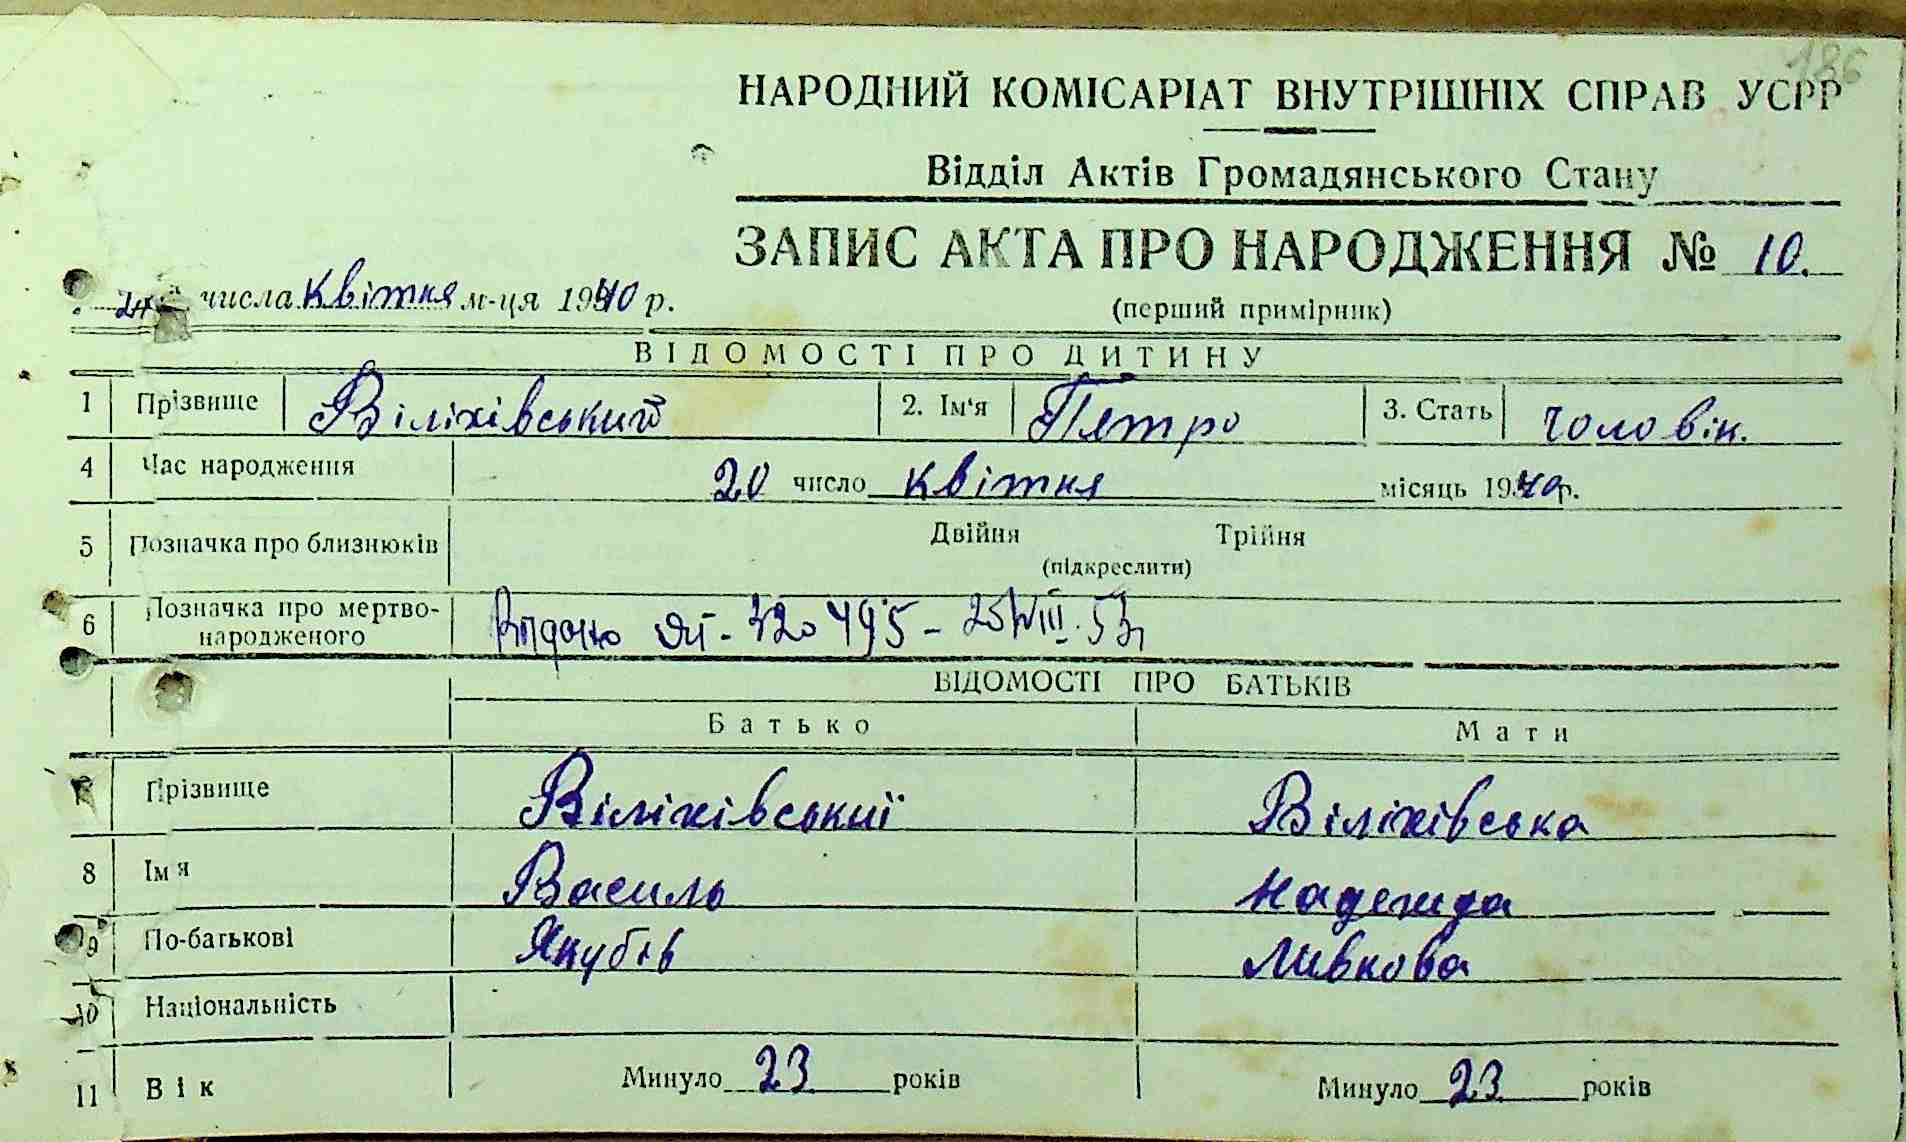 186
НАРОДНИЙ КОМІСАРІАТ ВНУТРІШНІХ СПРАВ УСРР
Відділ Актів Громадянського Стану
ЗАПИС АКТА ПРО НАРОДЖЕННЯ № 10.
числа квітня м-ця 1940 р.
(перший примірник)
ВІДОМОСТІ ПРО ДИТИНУ
1 Прізвище Віліхівський 2. Ім'я Петро 3. Стать чоловік.
4 Час народження 20 число квітня місяць 1940р.
5 Позначка про близнюків Двійня Трійня
(підкреслити)
6 Позначка про мертво-
народженого
ВІДОМОСТІ ПРО БАТЬКІВ
Батько Мати
7 Прізвище Віліхівський Віліхівська
8 Імя Василь Надежда
9 По-батькові Якубів Ливкова
10 Національність
11 Вік Минуло 23 років Минуло 23 років